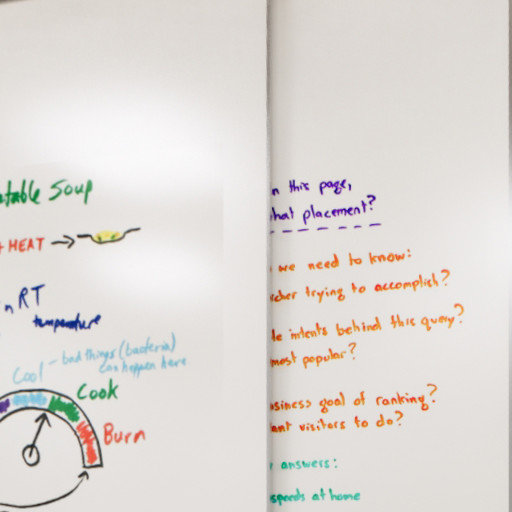 atable Soup
+ HEAT →
n RT
temperature
Cool - bad things (bacteria)
can happen here.
Cook
Burn
n this page,
hat placement?
we need to know:
cher trying to accomplish?
le intents behind this query?
most popular?
siness goal of ranking?
ant visitors to do?
answers:
speeds at home